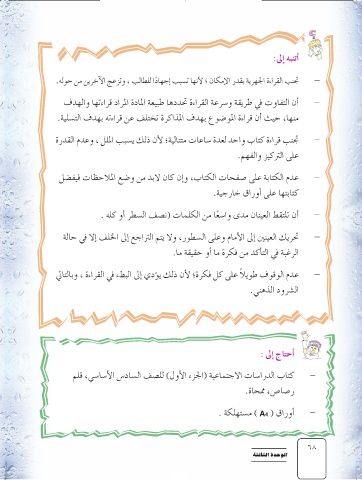 أنتبه إلى:
– تجنب القراءة الجهرية بقدر الإمكان ؛ لأنها تسبب إجهادًا للطالب ، وتزعج الآخرين من حوله.
– أن التفاوت في طريقة وسرعة القراءة تحددها طبيعة المادة المراد قراءتها والهدف
منها، حيث أن قراءة الموضوع بهدف المذاكرة تختلف عن قراءته بهدف التسلية.
– تجنب قراءة كتاب واحد لعدة ساعات متتالية؛ لأن ذلك يسبب الملل، وعدم القدرة
على التركيز والفهم.
– عدم الكتابة على صفحات الكتاب، وإن كان لابد من وضع الملاحظات فيفضل
كتابتها على أوراق خارجية.
– أن تلتقط العينان مدى واسعًا من الكلمات (نصف السطر أو كله .
– تحريك العينين إلى الأمام وعلى السطور، ولا يتم التراجع إلى الخلف إلا في حالة
الرغبة في التأكد من فكرة ما أو حقيقة ما.
– عدم الوقوف طويلاً على كل فكرة؛ لأن ذلك يؤدي إلى البطء في القراءة ، وبالتالي
الشرود الذهني.
أحتاج إلى :
– كتاب الدراسات الاجتماعية (الجزء الأول) للصف السادس الأساسي، قلم
رصاص، ممحاة.
– أوراق ( A4 ) مستهلكة .
٦٨
الوحدة الثالثة